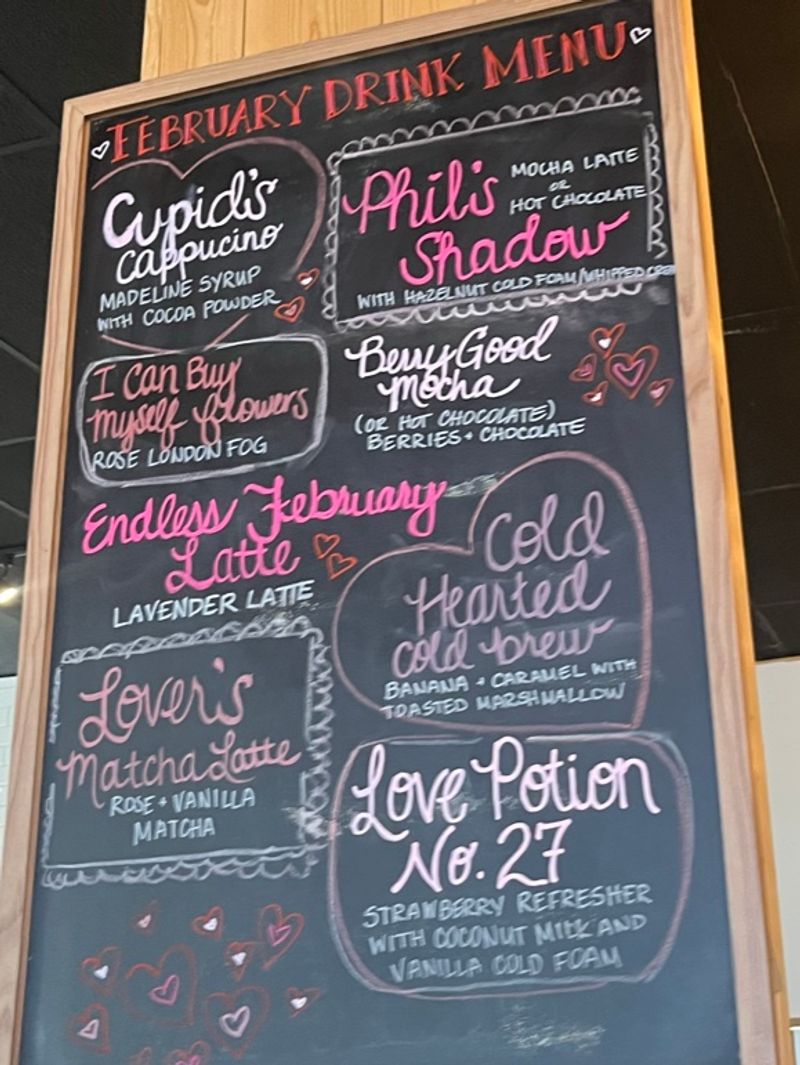 FEBRUARY DRINK MENU
Cupid's
Cappucino
MADELINE SYRUP
WITH COCOA POWDER
Phil's
Shadow
MOCHA LATTE
OR
HOT CHOCOLATE
WITH HAZELNUT COLD FOAM/WHIPPED CREM
I Can Buy
Myself flowers
ROSE LONDON FOG
Berry Good
Mocha
(OR HOT CHOCOLATE)
BERRIES + CHOCOLATE
Endless February
Latte
LAVENDER LATTE
Cold
Hearted
cold brew
BANANA + CARAMEL WITH
TOASTED MARSHMALLOW
Lover's
Matcha Latte
ROSE + VANILLA
MATCHA
Love Potion
No. 27
STRAWBERRY REFRESHER
WITH COCONUT MILK AND
VANILLA COLD FOAM